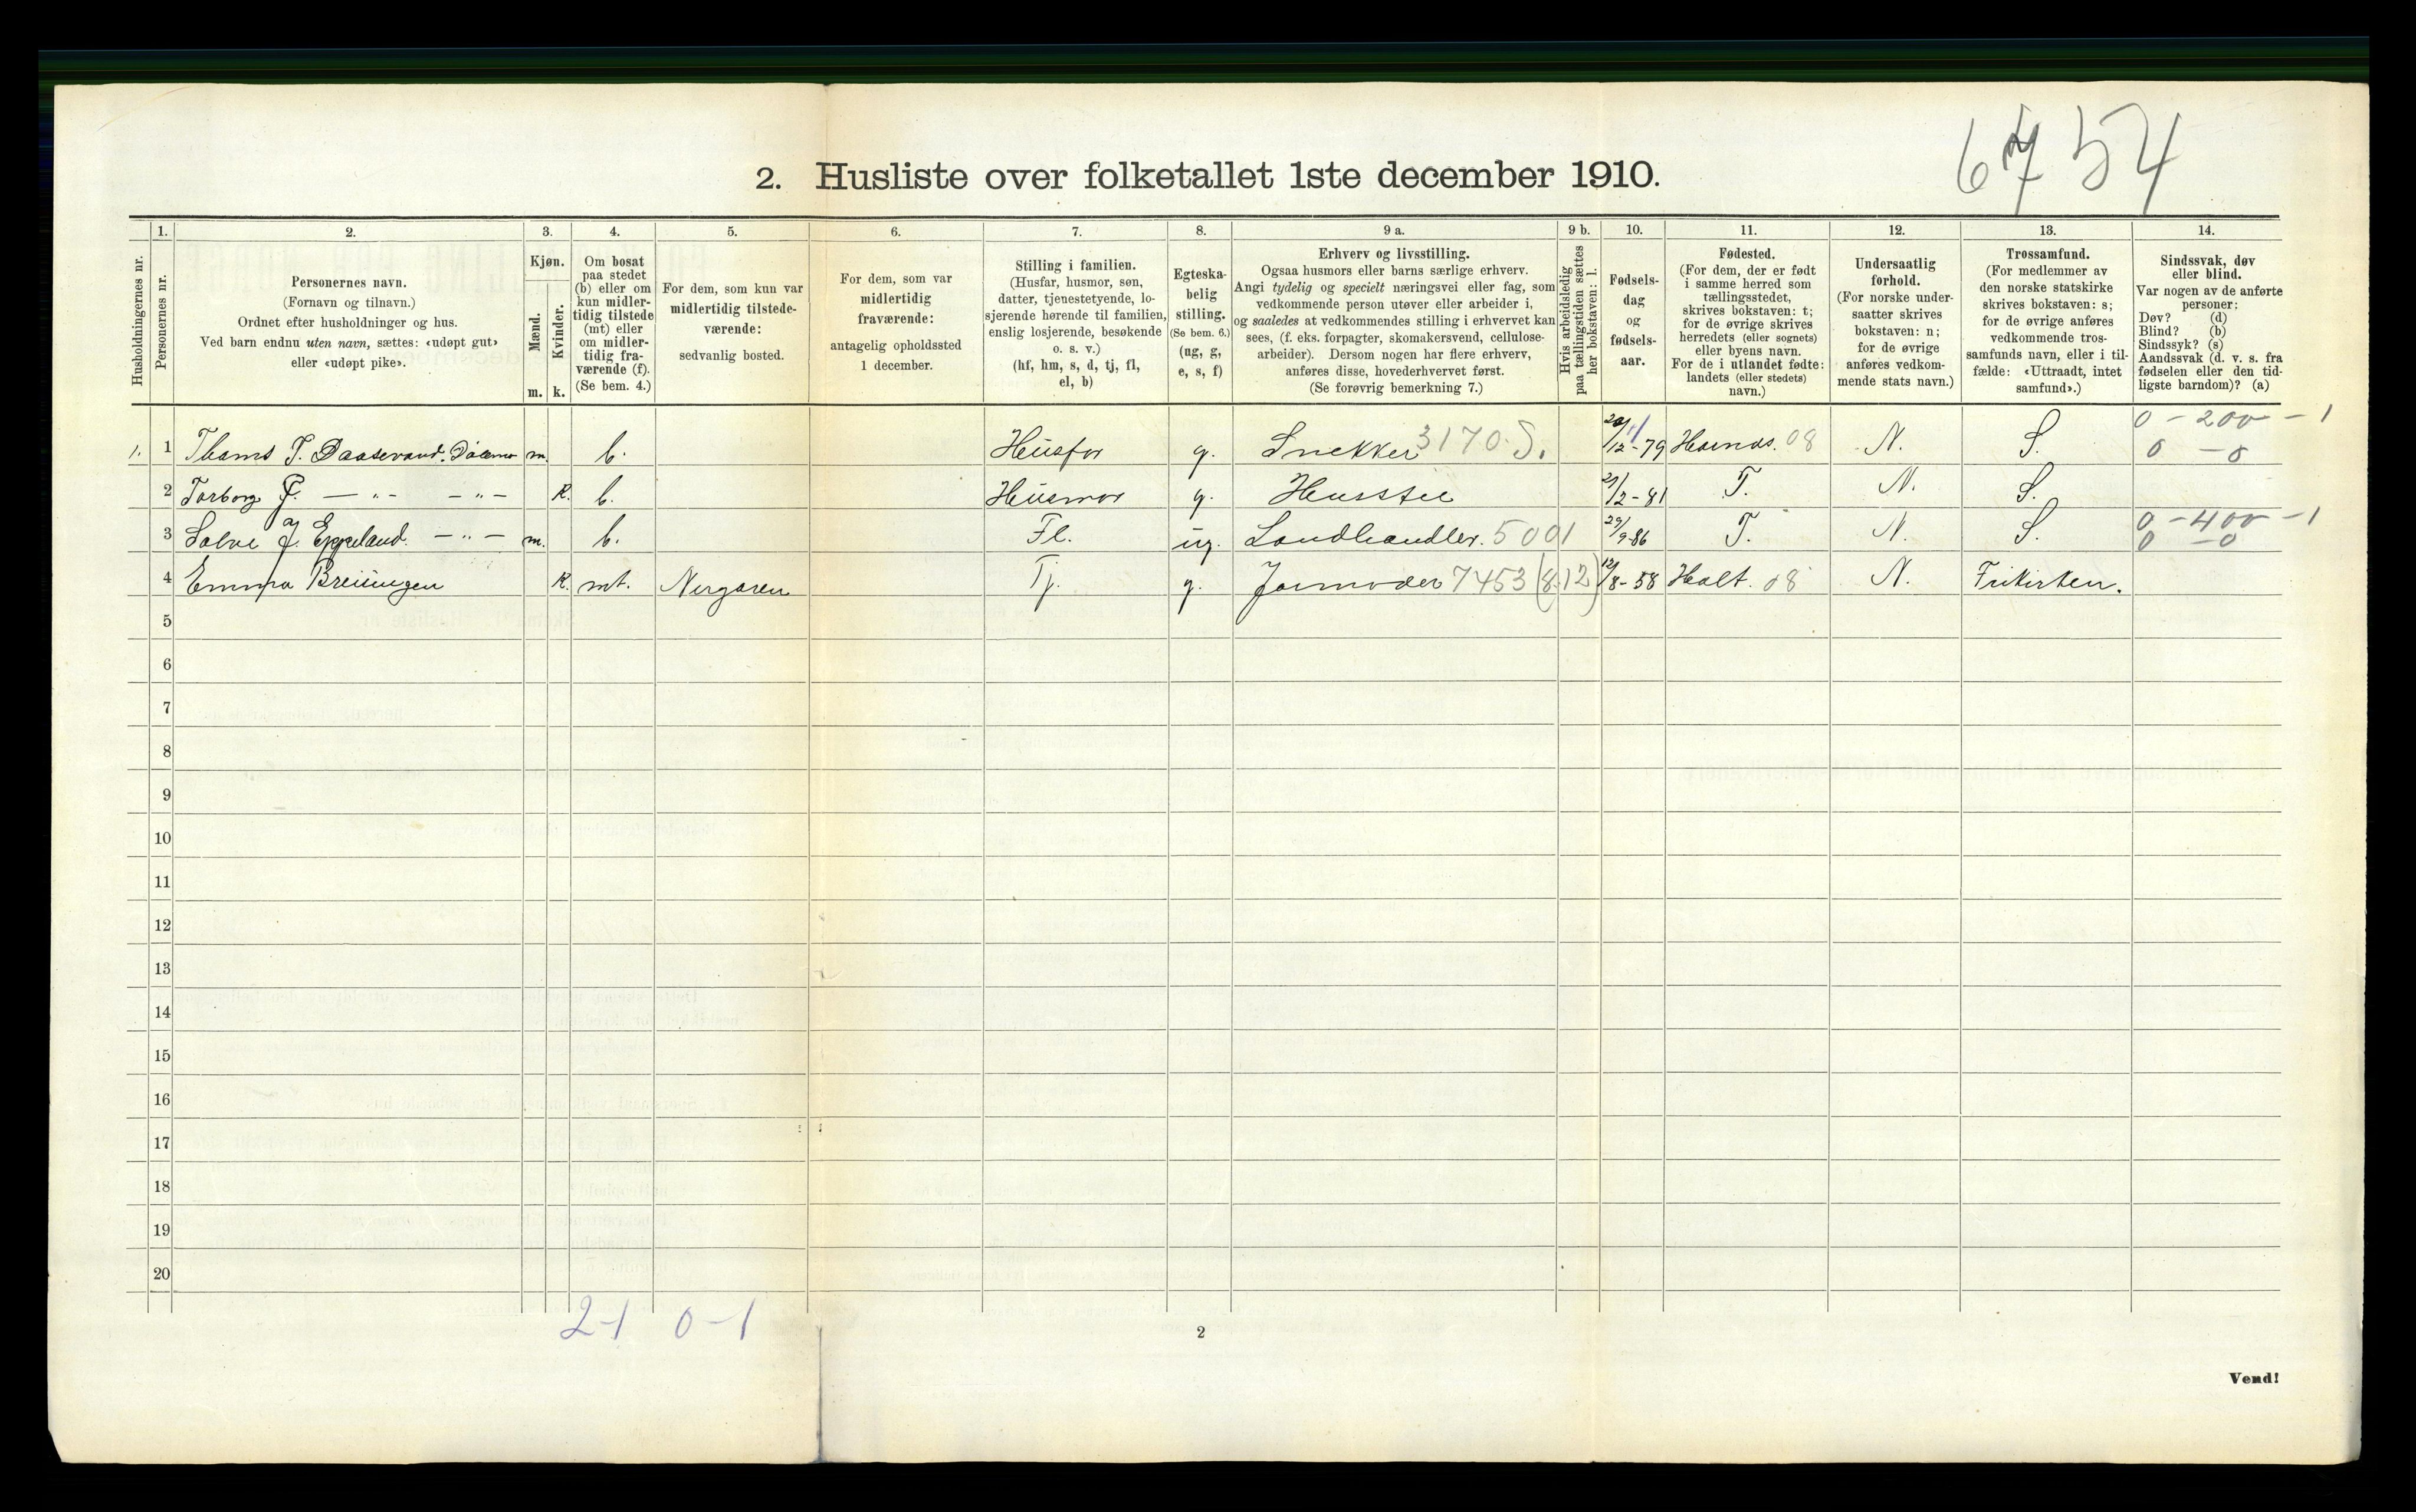 6754
2. Husliste over folketallet 1ste december 1910.
1. 2. 3. 4. 5. 6. 7. 8. 9 a. 9 b. 10. 11. 12. 13. 14.
Husholdningernes nr.
Personernes nr.
Personernes navn.
(Fornavn og tilnavn.)
Ordnet efter husholdninger og hus.
Ved barn endnu uten navn, sættes: «udøpt gut»
eller «udøpt pike».
Kjøn.
Mænd.
Kvinder.
m. k.
Om bosat
paa stedet
(b) eller om
kun midler-
tidig tilstede
(mt) eller
om midler-
tidig fra-
værende (f).
(Se bem. 4.)
For dem, som kun var
midlertidig tilstede-
værende:
sedvanlig bosted.
For dem, som var
midlertidig
fraværende:
antagelig opholdssted
1 december.
Stilling i familien.
(Husfar, husmor, søn,
datter, tjenestetyende, lo-
sjerende hørende til familien,
enslig losjerende, besøkende
o. s. v.)
(hf, hm, s, d, tj, fl,
el, b)
Egteska-
belig
stilling.
(Se bem. 6.)
(ug, g,
e, s, f)
Erhverv og livsstilling.
Ogsaa husmors eller barns særlige erhverv.
Angi tydelig og specielt næringsvei eller fag, som
vedkommende person utøver eller arbeider i,
og saaledes at vedkommendes stilling i erhvervet kan
sees, (f. eks. forpagter, skomakersvend, cellulose-
arbeider). Dersom nogen har flere erhverv,
anføres disse, hovederhvervet først.
(Se forøvrig bemerkning 7.)
Hvis arbeidsledig
paa tællingstiden sættes
her bokstaven: l.
Fødsels-
dag
og
fødsels-
aar.
Fødested.
(For dem, der er født
i samme herred som
tællingsstedet,
skrives bokstaven: t;
for de øvrige skrives
herredets (eller sognets)
eller byens navn.
For de i utlandet fødte:
landets (eller stedets)
navn.)
Undersaatlig
forhold.
(For norske under-
saatter skrives
bokstaven: n;
for de øvrige
anføres vedkom-
mende stats navn.)
Trossamfund.
(For medlemmer av
den norske statskirke
skrives bokstaven: s;
for de øvrige anføres
vedkommende tros-
samfunds navn, eller i til-
fælde: «Uttraadt, intet
samfund».)
Sindssvak, døv
eller blind.
Var nogen av de anførte
personer:
Døv? (d)
Blind? (b)
Sindssyk? (s)
Aandssvak (d. v. s. fra
fødselen eller den tid-
ligste barndom)? (a)
0 - 200 - 1
1. 1 Thams T. Daasevand. m. b. Husfar g. Snekker 3170 S. /12-79 08 N. S. 0 - 0
2 Torborg - " - - " - K. b. Husmor g. Husstel 21/2-81 T. N. S.
0 - 400 - 1
3 Salve J. Eppeland. - " - m. b. Fl. ug. Landhandler. 5001 29/9-86 T. N. S. 0 - 0
4 Emma K. mt. Nergaren Tj. g. Jormoder 7453 (8.12) /8-58 Holt. 08 N. Frikirken.
5
6
7
8
9
10
11
12
13
14
15
16
17
18
19
20
2-1 0-1
2
Vend!